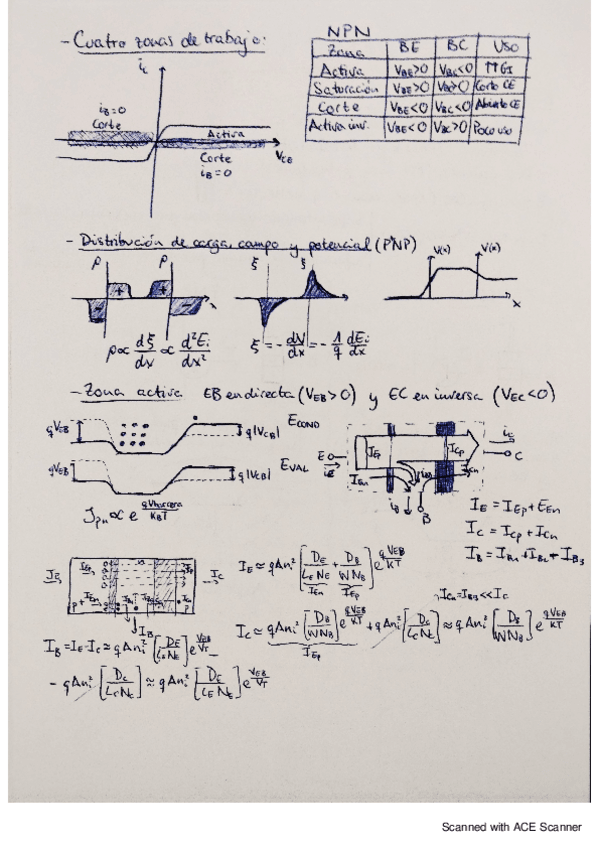 - Cuatro zonas de trabajo:
NPN
Zona BE BC USO
Activa V_BE>0 V_BC<0 ↑↑GI
Saturación V_BE>0 V_BC>0 Corto CE
Corte V_BE<0 V_BC<0 Abierto CE
Activa inv. V_BE<0 V_BC>0 Poco uso
i_c
i_B=0
Corte
Activa
V_CB
Corte
i_B=0
- Distribución de carga, campo y potencial (PNP)
ρ ρ ξ ξ V(x) V(x)
- + + - x x
ρ ∝ dξ/dx ∝ d²E_i/dx²
ξ = - dV/dx = - 1/q dE_i/dx
- Zona activa EB en directa (V_EB>0) y EC en inversa (V_EC<0)
qV_EB q|V_CB| E_COND
qV_EB q|V_CB| E_VAL
J_pn ∝ e^(qVbarrera/K_BT)
E I_Ep I_Cp i_c C
i_E I_En I_Cn
i_B B
I_E = I_Ep + E_En
I_C = I_Cp + I_Cn
I_B = I_B1 + I_B2 + I_B3
I_C
I_B
I_E ≃ qAn_i² [D_E/(L_E N_E) + D_B/(W N_B)] e^(qV_EB/KT)
I_En I_Ep
I_Cn = I_B3 << I_C
I_C ≃ qAn_i² [D_B/(W N_B)] e^(qV_EB/KT) + qAn_i² [D_C/(L_C N_C)] ≃ qAn_i² [D_B/(W N_B)] e^(qV_EB/KT)
I_Ep
I_B = I_E - I_C ≃ qAn_i² [D_E/(L_E N_E)] e^(V_EB/V_T) -
- qAn_i² [D_C/(L_C N_C)] ≃ qAn_i² [D_E/(L_E N_E)] e^(V_EB/V_T)
Scanned with ACE Scanner